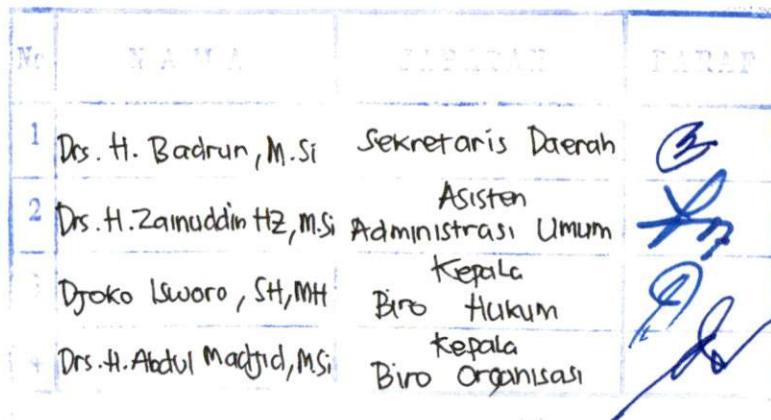 No NAMA JABATAN PARAF
1 Drs. H. Badrun, M.Si Sekretaris Daerah
2 Drs. H. Zainuddin HZ, M.Si Asisten Administrasi Umum
3 Djoko Isworo, SH, MH Kepala Biro Hukum
4 Drs. H. Abdul Madjid, MSi Kepala Biro Organisasi